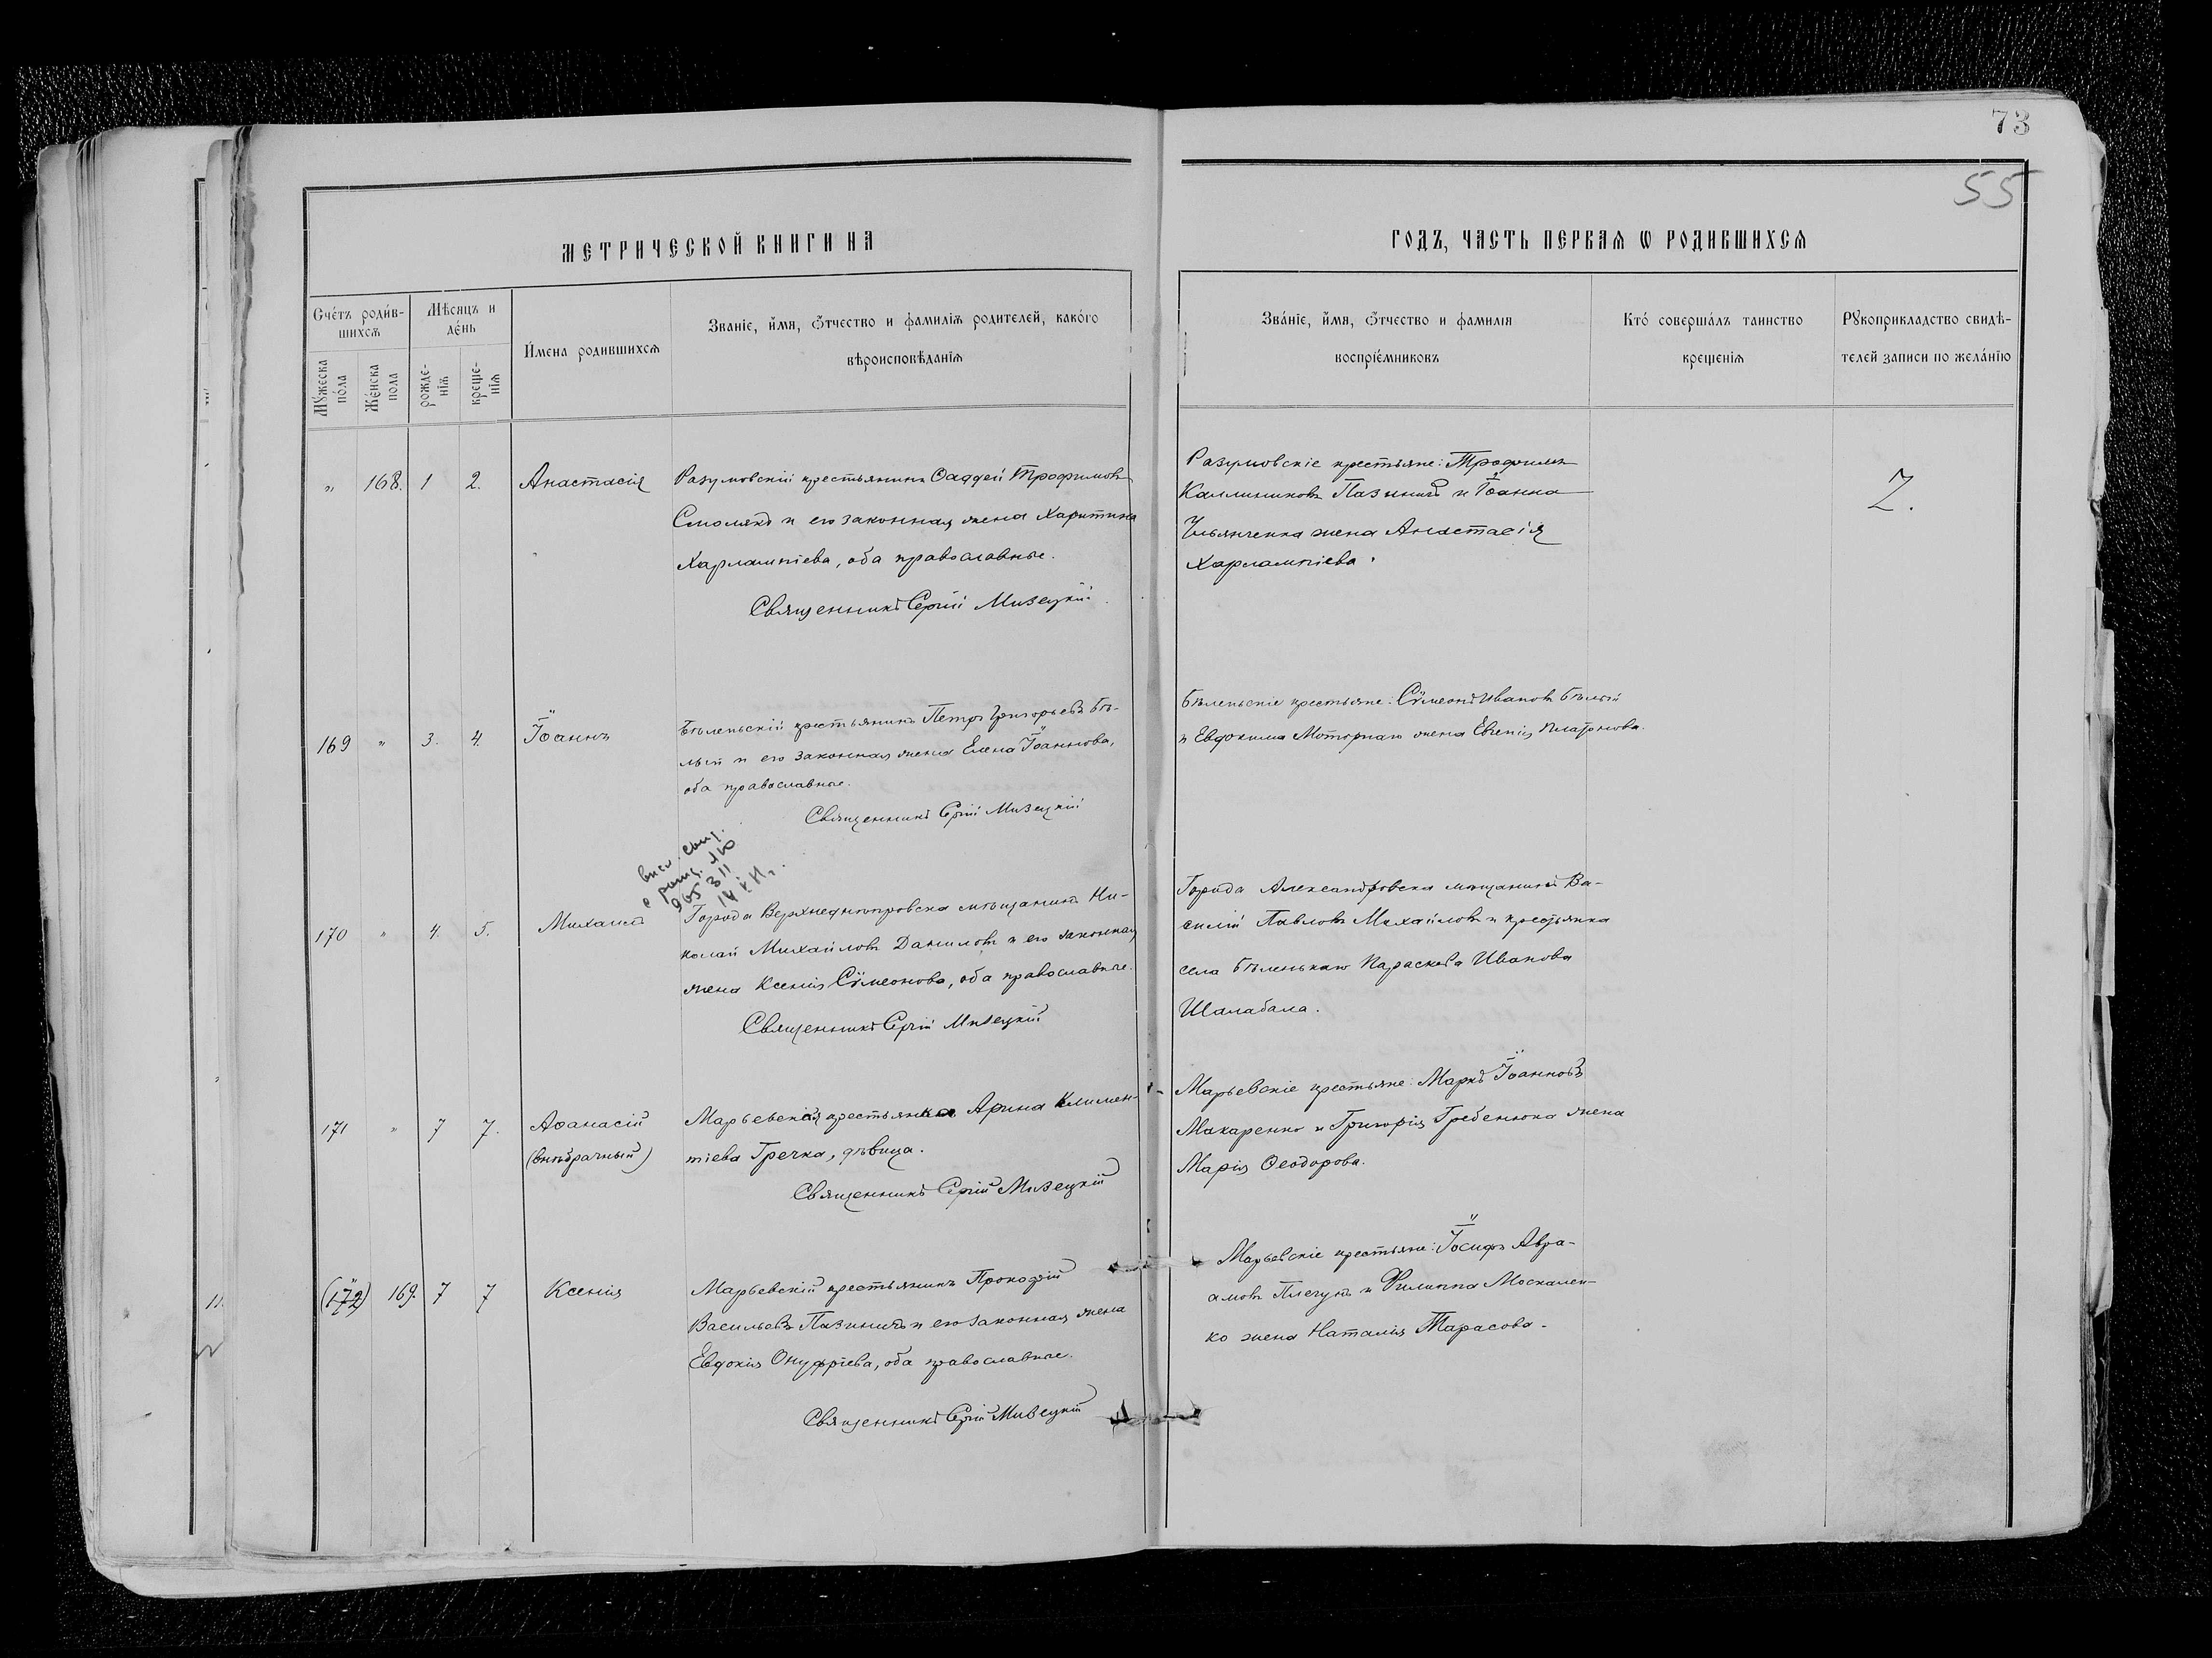 73
55
МЕТРИЧЕСКОЙ КНИГИ НА
ГОДЪ, ЧАСТЬ ПЕРВАѦ Ѡ РОДИВШИХСѦ
Сче́тъ роди́в-
шихсѧ
Мѣсяцъ и
де́нь
И́мена родившихсѧ
Званіе, и́мя, ѻ́тчество и фамиліѧ родителей, како́го
вѣроисповѣданіѧ
Мꙋ́жеска
по́ла
Же́нска
пола
рожде-
нія
креще-
нія
Зва́ніе, и́мя, ѻ́тчество и фамилія
воспріе́мниковъ
Кто́ соверша́лъ таинство
крещеніѧ
Рꙋкоприкладство свидѣ-
телей записи по жела́нію
„ 168. 1 2. Анастасія
Разумовскій крестьянинъ Ѳаддей Трофимовъ
Смолякъ и его законная жена Харитина
Харлампіева, оба православные.
Священникъ Сергій Мизецкій
Разумовскіе крестьяне: Трофимъ
Каллиниковъ Пазиничъ и Іоанна
Ульянченка жена Анастасія
Харлампіева.
Z.
169 „ 3. 4. Іоаннъ
Бѣленьскій крестьянинъ Петръ Григорьевъ Бѣ-
лый и его законная жена Елена Іоаннова,
оба православные.
Священникъ Сергій Мизецкій
Бѣленьскіе крестьяне: Сѵмеонъ Ивановъ Бѣлый
и Евдокима Моторнаго жена Евгенія Платонова.
965311
170 „ 4. 5. Михаилъ
Города Верхнеднѣпровска мѣщанинъ Ни-
колай Михайловъ Даниловъ и его законная
жена Ксенія Сѵмеонова, оба православные.
Священникъ Сергій Мизецкій
Города Александровска мѣщанинъ Ва-
силій Павловъ Михайловъ и крестьянка
села Бѣленькаго Параскева Иванова
Шалабала.
171 „ 7 7. Аѳанасій
(внѣбрачный)
Марьевская крестьянка Арина Климен-
тіева Гречка, дѣвица.
Священникъ Сергій Мизецкій
Марьевскіе крестьяне: Маркъ Іоанновъ
Макаренко и Григорія Гребенюка жена
Марія Ѳеодорова.
(172) „ 169. 7 7 Ксенія
Марьевскій крестьянинъ Прокофій
Васильевъ Пазиничъ и его законная жена
Евдокія Онуфріева, оба православные.
Священникъ Сергій Мизецкій
Марьевскіе крестьяне: Іосифъ Авра-
амовъ Плегунъ и Филиппа Москален-
ко жена Наталія Тарасова.
11.